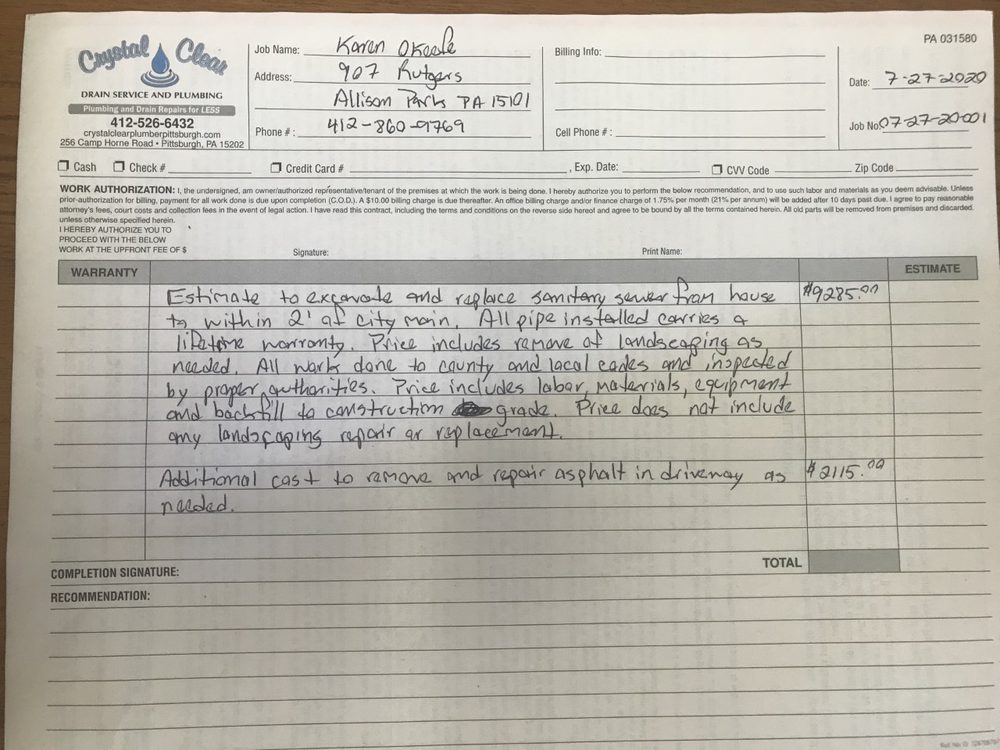 Crystal Clear
DRAIN SERVICE AND PLUMBING
Plumbing and Drain Repairs for LESS
412-526-6432
crystalclearplumberpittsburgh.com
256 Camp Horne Road • Pittsburgh, PA 15202
Job Name: Karen OKeefe
Address: 907 Rutgers
Allison Park PA 15101
Phone #: 412-860-9769
Billing Info:
Cell Phone #:
PA 031580
Date: 7-27-2020
Job No: 07-27-20-001
Cash Check # Credit Card # , Exp. Date: CVV Code Zip Code
WORK AUTHORIZATION: I, the undersigned, am owner/authorized representative/tenant of the premises at which the work is being done. I hereby authorize you to perform the below recommendation, and to use such labor and materials as you deem advisable. Unless
prior-authorization for billing, payment for all work done is due upon completion (C.O.D.). A $10.00 billing charge is due thereafter. An office billing charge and/or finance charge of 1.75% per month (21% per annum) will be added after 10 days past due. I agree to pay reasonable
attorney's fees, court costs and collection fees in the event of legal action. I have read this contract, including the terms and conditions on the reverse side hereof and agree to be bound by all the terms contained herein. All old parts will be removed from premises and discarded.
unless otherwise specified herein.
I HEREBY AUTHORIZE YOU TO
PROCEED WITH THE BELOW
WORK AT THE UPFRONT FEE OF $ Signature: Print Name:
WARRANTY ESTIMATE
Estimate to excavate and replace sanitary sewer from house $9285.00
to within 2' of city main. All pipe installed carries a
lifetime warranty. Price includes remove of landscaping as
needed. All work done to county and local codes and inspected
by proper authorities. Price includes labor, materials, equipment
and backfill to construction grade. Price does not include
any landscaping repair or replacement.
Additional cost to remove and repair asphalt in driveway as $2115.00
needed.
TOTAL
COMPLETION SIGNATURE:
RECOMMENDATION: